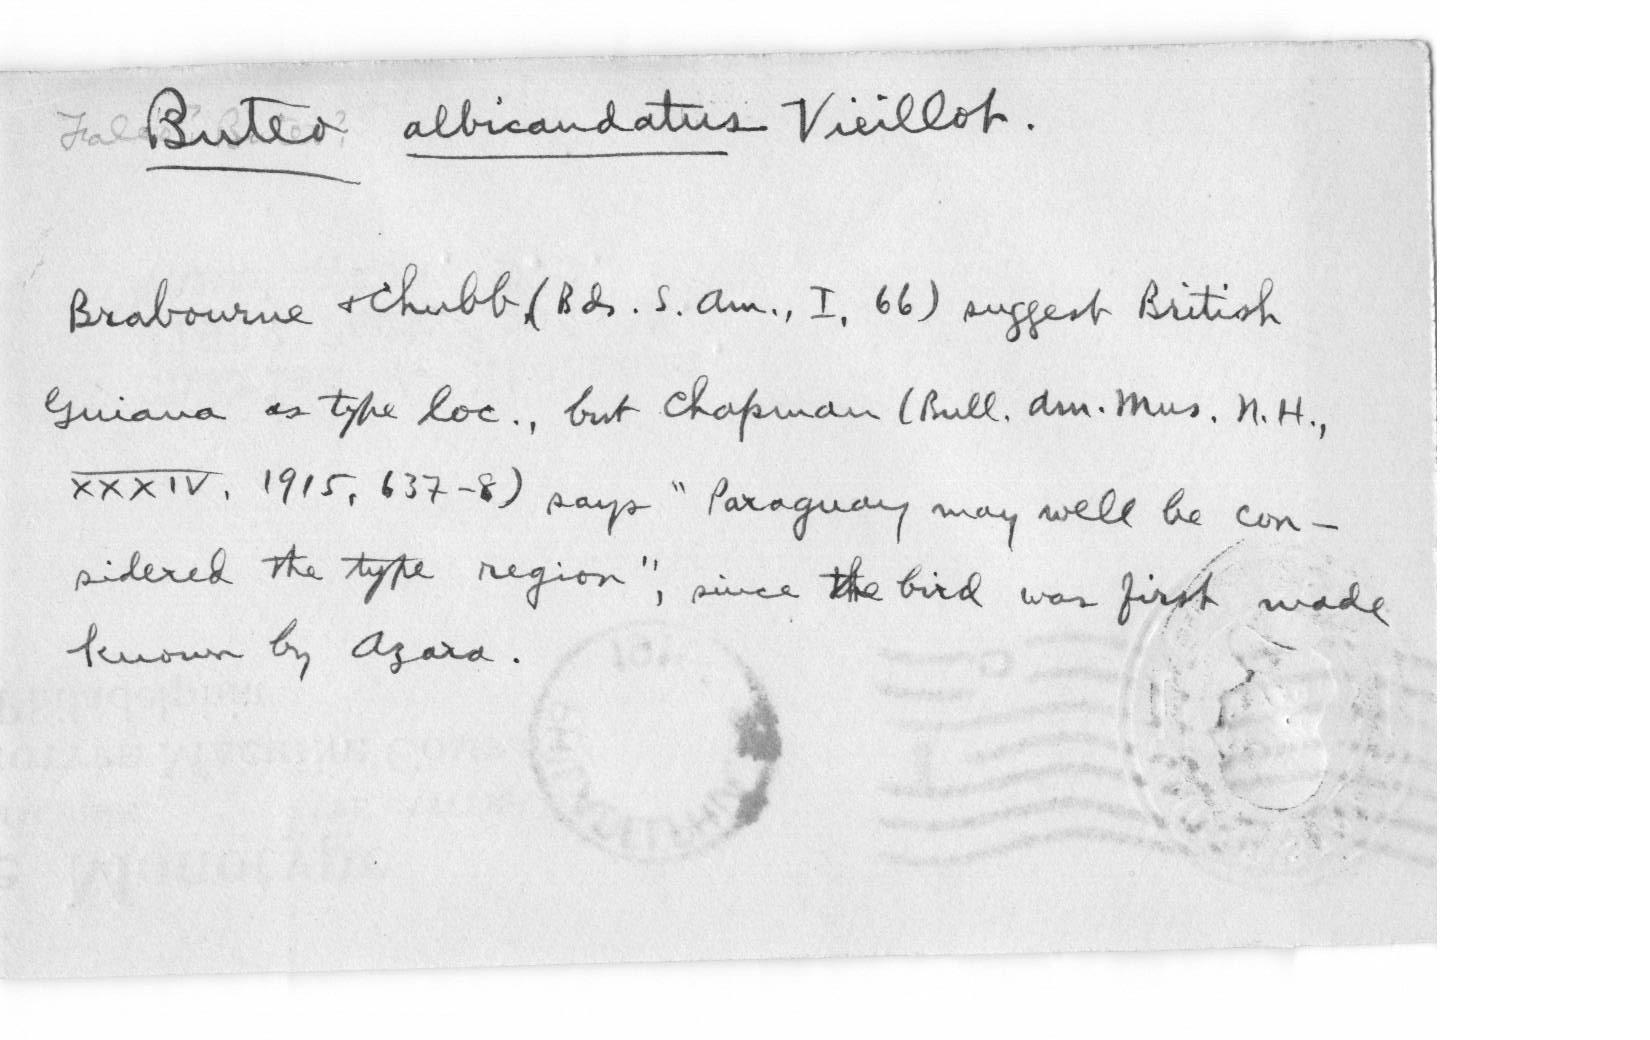 Buteo albicaudatus Vieillot.
Brabourne + Chubb, (Bds. S. Am., I, 66) suggest British
Guiana as type loc., but Chapman (Bull. Am. Mus. N.H.,
XXXIV, 1915, 637-8) says "Paraguay may well be con-
sidered the type region", since the bird was first made
known by Azara.
PHILADELPHIA